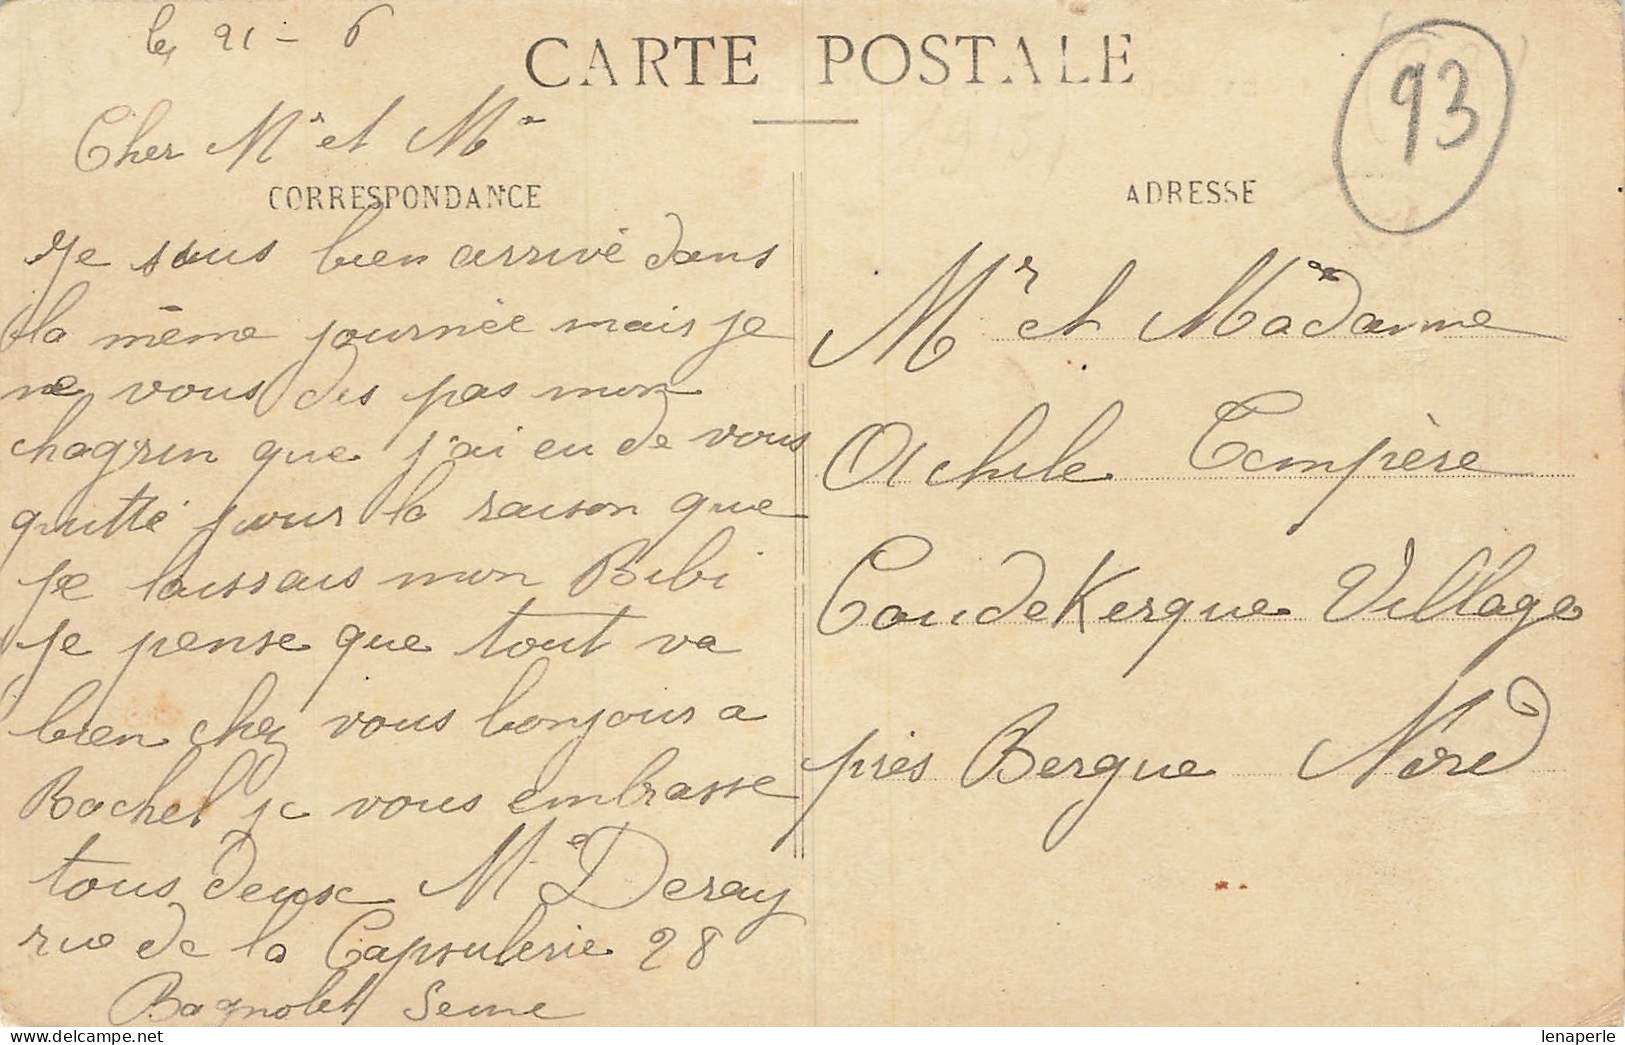 le 21 - 6
CARTE POSTALE
93
Cher Mr et Me
CORRESPONDANCE
Je suis bien arrivé dans
la même journée mais je
ne vous dis pas mon
chagrin que j'ai eu de vous
quitté pour la raison que
je laissais mon Bibi
je pense que tout va
bien chez vous bonjour a
Rachel je vous embrasse
tous deux Me Deray
rue de la Capsulerie 28
Bagnolet Seine
ADRESSE
Mr et Madame
Achile Tempère
Coudekerque Village
près Bergue Nord
lenaperle